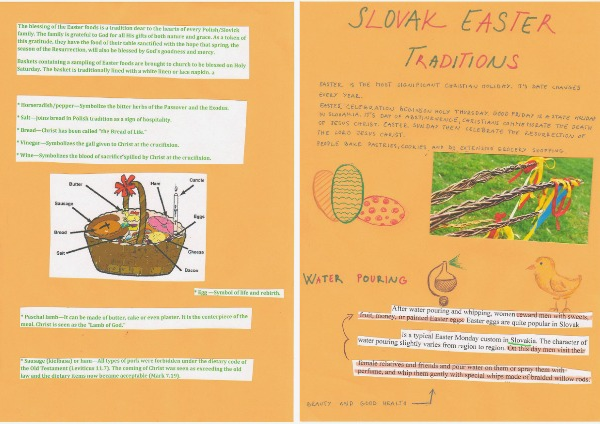 The blessing of the Easter foods is a tradition dear to the hearts of every Polish/Slavick
family. The family is grateful to God for all His gifts of both nature and grace. As a token of
this gratitude, they have the food of their table sanctified with the hope that spring, the
season of the Resurrection, will also be blessed by God's goodness and mercy.
Baskets containing a sampling of Easter foods are brought to church to be blessed on Holy
Saturday. The basket is traditionally lined with a white linen or lace napkin.
* Horseradish/pepper—Symbolize the bitter herbs of the Passover and the Exodus.
* Salt—joins bread in Polish tradition as a sign of hospitality.
* Bread—Christ has been called "the Bread of Life."
* Vinegar—Symbolizes the gall given to Christ at the crucifixion.
* Wine—Symbolizes the blood of sacrifice spilled by Christ at the crucifixion.
Butter
Ham
Candle
Sausage
Eggs
Bread
Salt
Cheese
Bacon
* Egg —Symbol of life and rebirth.
* Paschal lamb—It can be made of butter, cake or even plaster. It is the center piece of the
meal. Christ is seen as the "Lamb of God."
* Sausage (kielbasa) or ham—All types of pork were forbidden under the dietary code of
the Old Testament (Leviticus 11.7). The coming of Christ was seen as exceeding the old
law and the dietary items now become acceptable (Mark 7.19).
SLOVAK EASTER
TRADITIONS
EASTER IS THE MOST SIGNIFICANT CHRISTIAN HOLIDAY. IT'S DATE CHANGES
EVERY YEAR.
EASTER CELEBRATION BEGINS ON HOLY THURSDAY. GOOD FRIDAY IS A STATE HOLIDAY
IN SLOVAKIA. IT'S DAY OF ABSTINENCE, CHRISTIANS COMMEMORATE THE DEATH
OF JESUS CHRIST. EASTER SUNDAY THEN CELEBRATE THE RESURRECTION OF
THE LORD JESUS CHRIST.
PEOPLE BAKE PASTRIES, COOKIES AND DO EXTENSIVE GROCERY SHOPPING.
WATER POURING
After water pouring and whipping, women reward men with sweets,
fruit, money, or painted Easter eggs. Easter eggs are quite popular in Slovak
is a typical Easter Monday custom in Slovakia. The character of
water pouring slightly varies from region to region. On this day men visit their
female relatives and friends and pour water on them or spray them with
perfume, and whip them gently with special whips made of braided willow rods.
BEAUTY AND GOOD HEALTH